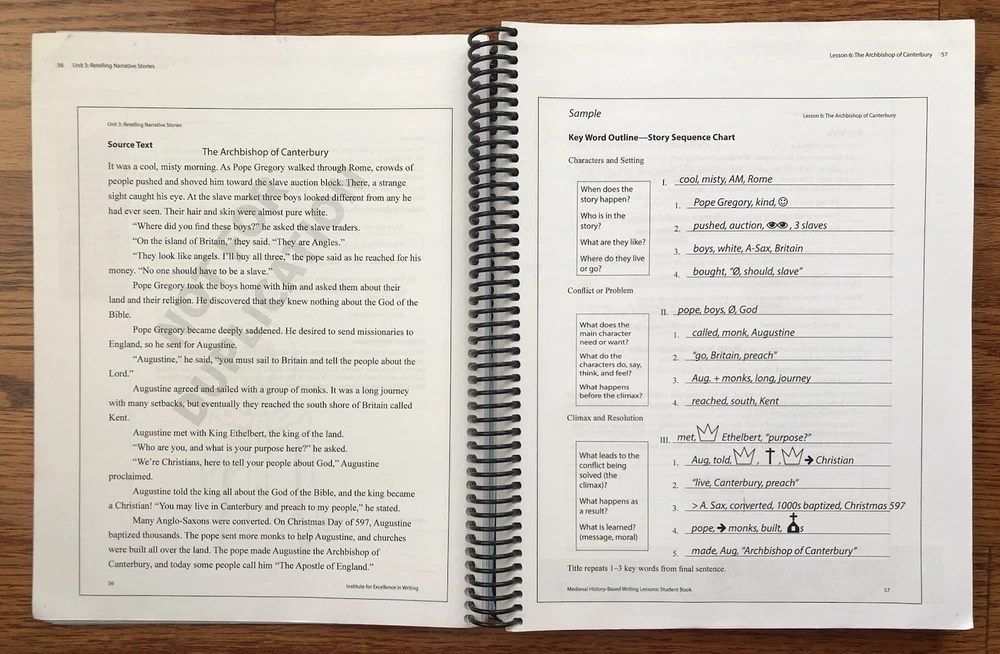 56 Unit 3: Retelling Narrative Stories
Unit 3: Retelling Narrative Stories
Source Text
The Archbishop of Canterbury
It was a cool, misty morning. As Pope Gregory walked through Rome, crowds of
people pushed and shoved him toward the slave auction block. There, a strange
sight caught his eye. At the slave market three boys looked different from any he
had ever seen. Their hair and skin were almost pure white.
"Where did you find these boys?" he asked the slave traders.
"On the island of Britain," they said. "They are Angles."
"They look like angels. I'll buy all three," the pope said as he reached for his
money. "No one should have to be a slave."
Pope Gregory took the boys home with him and asked them about their
land and their religion. He discovered that they knew nothing about the God of the
Bible.
Pope Gregory became deeply saddened. He desired to send missionaries to
England, so he sent for Augustine.
"Augustine," he said, "you must sail to Britain and tell the people about the
Lord."
Augustine agreed and sailed with a group of monks. It was a long journey
with many setbacks, but eventually they reached the south shore of Britain called
Kent.
Augustine met with King Ethelbert, the king of the land.
"Who are you, and what is your purpose here?" he asked.
"We're Christians, here to tell your people about God," Augustine
proclaimed.
Augustine told the king all about the God of the Bible, and the king became
a Christian! "You may live in Canterbury and preach to my people," he stated.
Many Anglo-Saxons were converted. On Christmas Day of 597, Augustine
baptized thousands. The pope sent more monks to help Augustine, and churches
were built all over the land. The pope made Augustine the Archbishop of
Canterbury, and today some people call him "The Apostle of England."
NOT FOR
DUPLICATION
56 Institute for Excellence in Writing
Lesson 6: The Archbishop of Canterbury 57
Sample
Lesson 6: The Archbishop of Canterbury
Key Word Outline—Story Sequence Chart
Characters and Setting
When does the
story happen?
Who is in the
story?
What are they like?
Where do they live
or go?
I. cool, misty, AM, Rome
1. Pope Gregory, kind, ☺
2. pushed, auction, 👁👁, 3 slaves
3. boys, white, A-Sax, Britain
4. bought, "Ø, should, slave"
Conflict or Problem
What does the
main character
need or want?
What do the
characters do, say,
think, and feel?
What happens
before the climax?
II. pope, boys, Ø, God
1. called, monk, Augustine
2. "go, Britain, preach"
3. Aug. + monks, long, journey
4. reached, south, Kent
Climax and Resolution
What leads to the
conflict being
solved (the
climax)?
What happens as
a result?
What is learned?
(message, moral)
III. met, Ethelbert, "purpose?"
1. Aug, told, , ✝, ➔ Christian
2. "live, Canterbury, preach"
3. > A. Sax, converted, 1000s baptized, Christmas 597
4. pope, ➔ monks, built, s
5. made, Aug, "Archbishop of Canterbury"
Title repeats 1–3 key words from final sentence.
Medieval History-Based Writing Lessons: Student Book 57